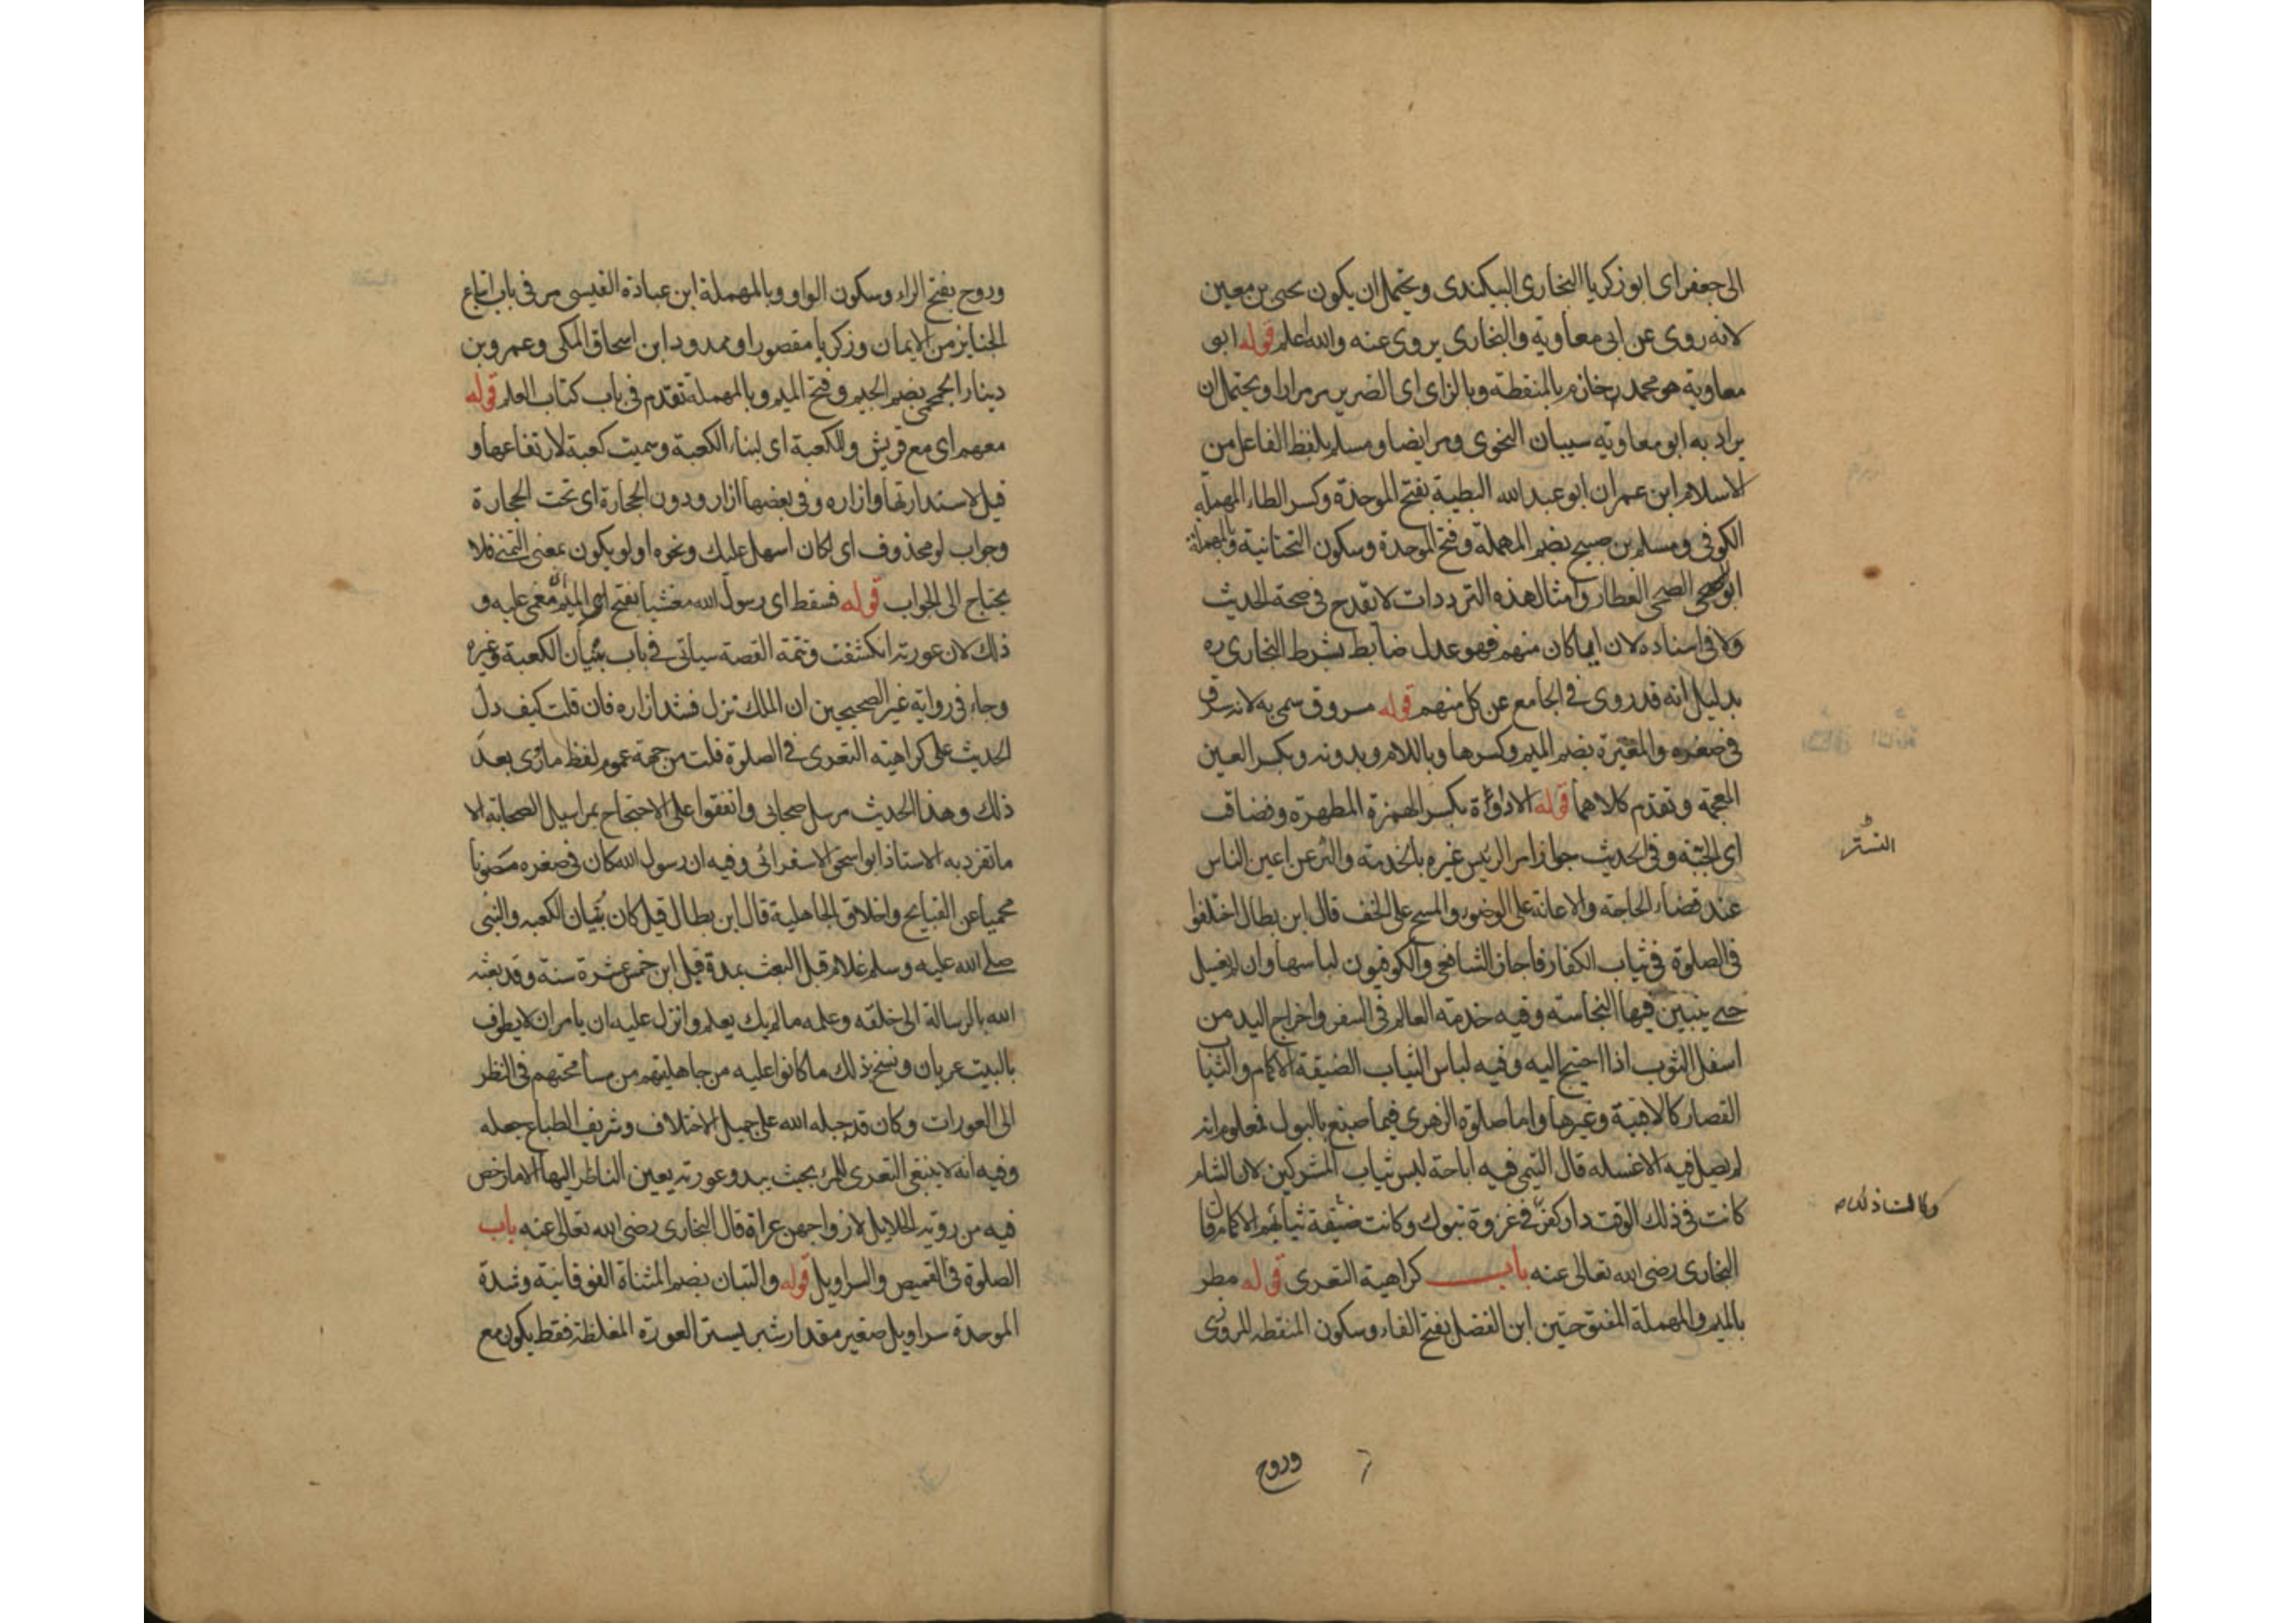 الى جعفر اى ابو زكريا البخارى البيكندى ويحتمل ان يكون يحيى بن معين
لانه روى عن ابى معاوية والبخارى يروى عنه والله اعلم قوله ابو
معاوية هو محمد بن خازم بالمنقطة وبالزاى اى الضرير مر مرارا ويحتمل ان
يراد به ابو معاوية سيبان النحوى ومر ايضا ومسلم بلفظ الفاعل من
الاسلام ابن عمران ابو عبد الله البطية بفتح الموحدة وكسر الطاء المهملة
الكوفى ومسلم بن صبيح بضم المهملة وفتح الموحدة وسكون التحتانية وبالمهملة
ابو الضحى العطار وامثال هذه الترددات لا تقدح فى صحة الحديث
ولا فى اسناده لان ايما كان منهم فهو عدل ضابط بشرط البخارى
بدليل انه قد روى فى الجامع عن كل منهم قوله مسروق سمى به لانه سرق
فى صغره والمغيرة بضم الميم وكسرها وباللام وبدونه وبكسر الغين
المعجمة وتقدم كلاهما قوله الاداوة بكسر الهمزة المطهرة وفضاق
اى الجبة وفى الحديث جواز امر الرئيس غيره بالخدمة والتستر عن اعين الناس
عند قضاء الحاجة والاعانة على الوضوء والمسح على الخف قال ابن بطال اختلفوا
فى الصلوة فى ثياب الكفار فاجاز الشافعى والكوفيون لباسها وان لم يغسل
حتى يتبين فيها النجاسة وفيه خدمة العالم فى السفر واخراج اليد من
اسفل الثوب اذا احتيج اليه وفيه لباس الثياب الضيقة الاكمام والثيا
القصار كالاقبية وغيرها واما صلوة الزهرى فيما صبغ بالبول فمعلوم انه
لم يصل فيه الا غسله قال التيمى فيه اباحة لبس ثياب المشركين لان الشام
كانت فى ذلك الوقت دار كفر فى غزوة تبوك وكانت ضيقة ثيابهم الاكمام قال
البخارى رضى الله تعالى عنه باب كراهية التعرى قوله مطر
بالميم والمهملة المفتوحتين ابن الفضل بفتح الفاء وسكون المنقطة المروزى
التستر
وروح
وروح بفتح الراء وسكون الواو وبالمهملة ابن عبادة القيسى مر فى باب اتباع
الجنايز من الايمان وزكريا مقصورا وممدودا ابن اسحاق المكى وعمرو بن
دينار الجمحى بضم الجيم وفتح الميم وبالمهملة تقدم فى باب كتاب العلم قوله
معهم اى مع قريش وللكعبة اى لبناء الكعبة وسميت كعبة لارتفاعها و
قيل لاستدارتها وازاره وفى بعضها ازار ودون الحجارة اى تحت الحجارة
وجواب لو محذوف اى لكان اسهل عليك ونحوه او لو يكون بمعنى التمنى فلا
يحتاج الى الجواب قوله فسقط اى رسول الله مغشيا بفتح الميم اى مغمى عليه و
ذلك لان عورته انكشفت وتتمة القصة سياتى فى باب بنيان الكعبة وغيره
وجاء فى رواية غير الصحيحين ان الملك نزل فشد ازاره فان قلت كيف دل
الحديث على كراهية التعرى فى الصلوة قلت من جهة عموم لفظ ما رئى بعد
ذلك وهذا الحديث مرسل صحابى واتفقوا على الاحتجاج بمراسيل الصحابة الا
ما تفرد به الاستاذ ابو اسحق الاسفرائى وفيه ان رسول الله كان فى صغره مصونا
محميا عن القبايح واخلاق الجاهلية قال ابن بطال قيل كان بنيان الكعبه والنبى
صلى الله عليه وسلم غلام قبل البعث بمدة قيل ابن خمس عشرة سنة وقد بعثه
الله بالرسالة الى خلقه وعلمه ما لم يك يعلم وانزل عليه ان يامر ان لا يطوف
بالبيت عريان ونسخ بذلك ما كانوا عليه من جاهليتهم من مسامحتهم فى النظر
الى العورات وكان قد جبله الله على جميل الاخلاف وشريف الطباع جعله
وفيه انه لا ينبغى التعرى للمرء بحيث يبدو عورته يعين الناظر اليها الا ما رخص
فيه من روية الحلايل لازواجهن عراة قال البخارى رضى الله تعالى عنه باب
الصلوة فى القميص والسراويل قوله والتبان بضم المثناة الفوقانية وشدة
الموحدة سراويل صغير مقدار شبر يستر العورة المغلظة فقط يكون مع